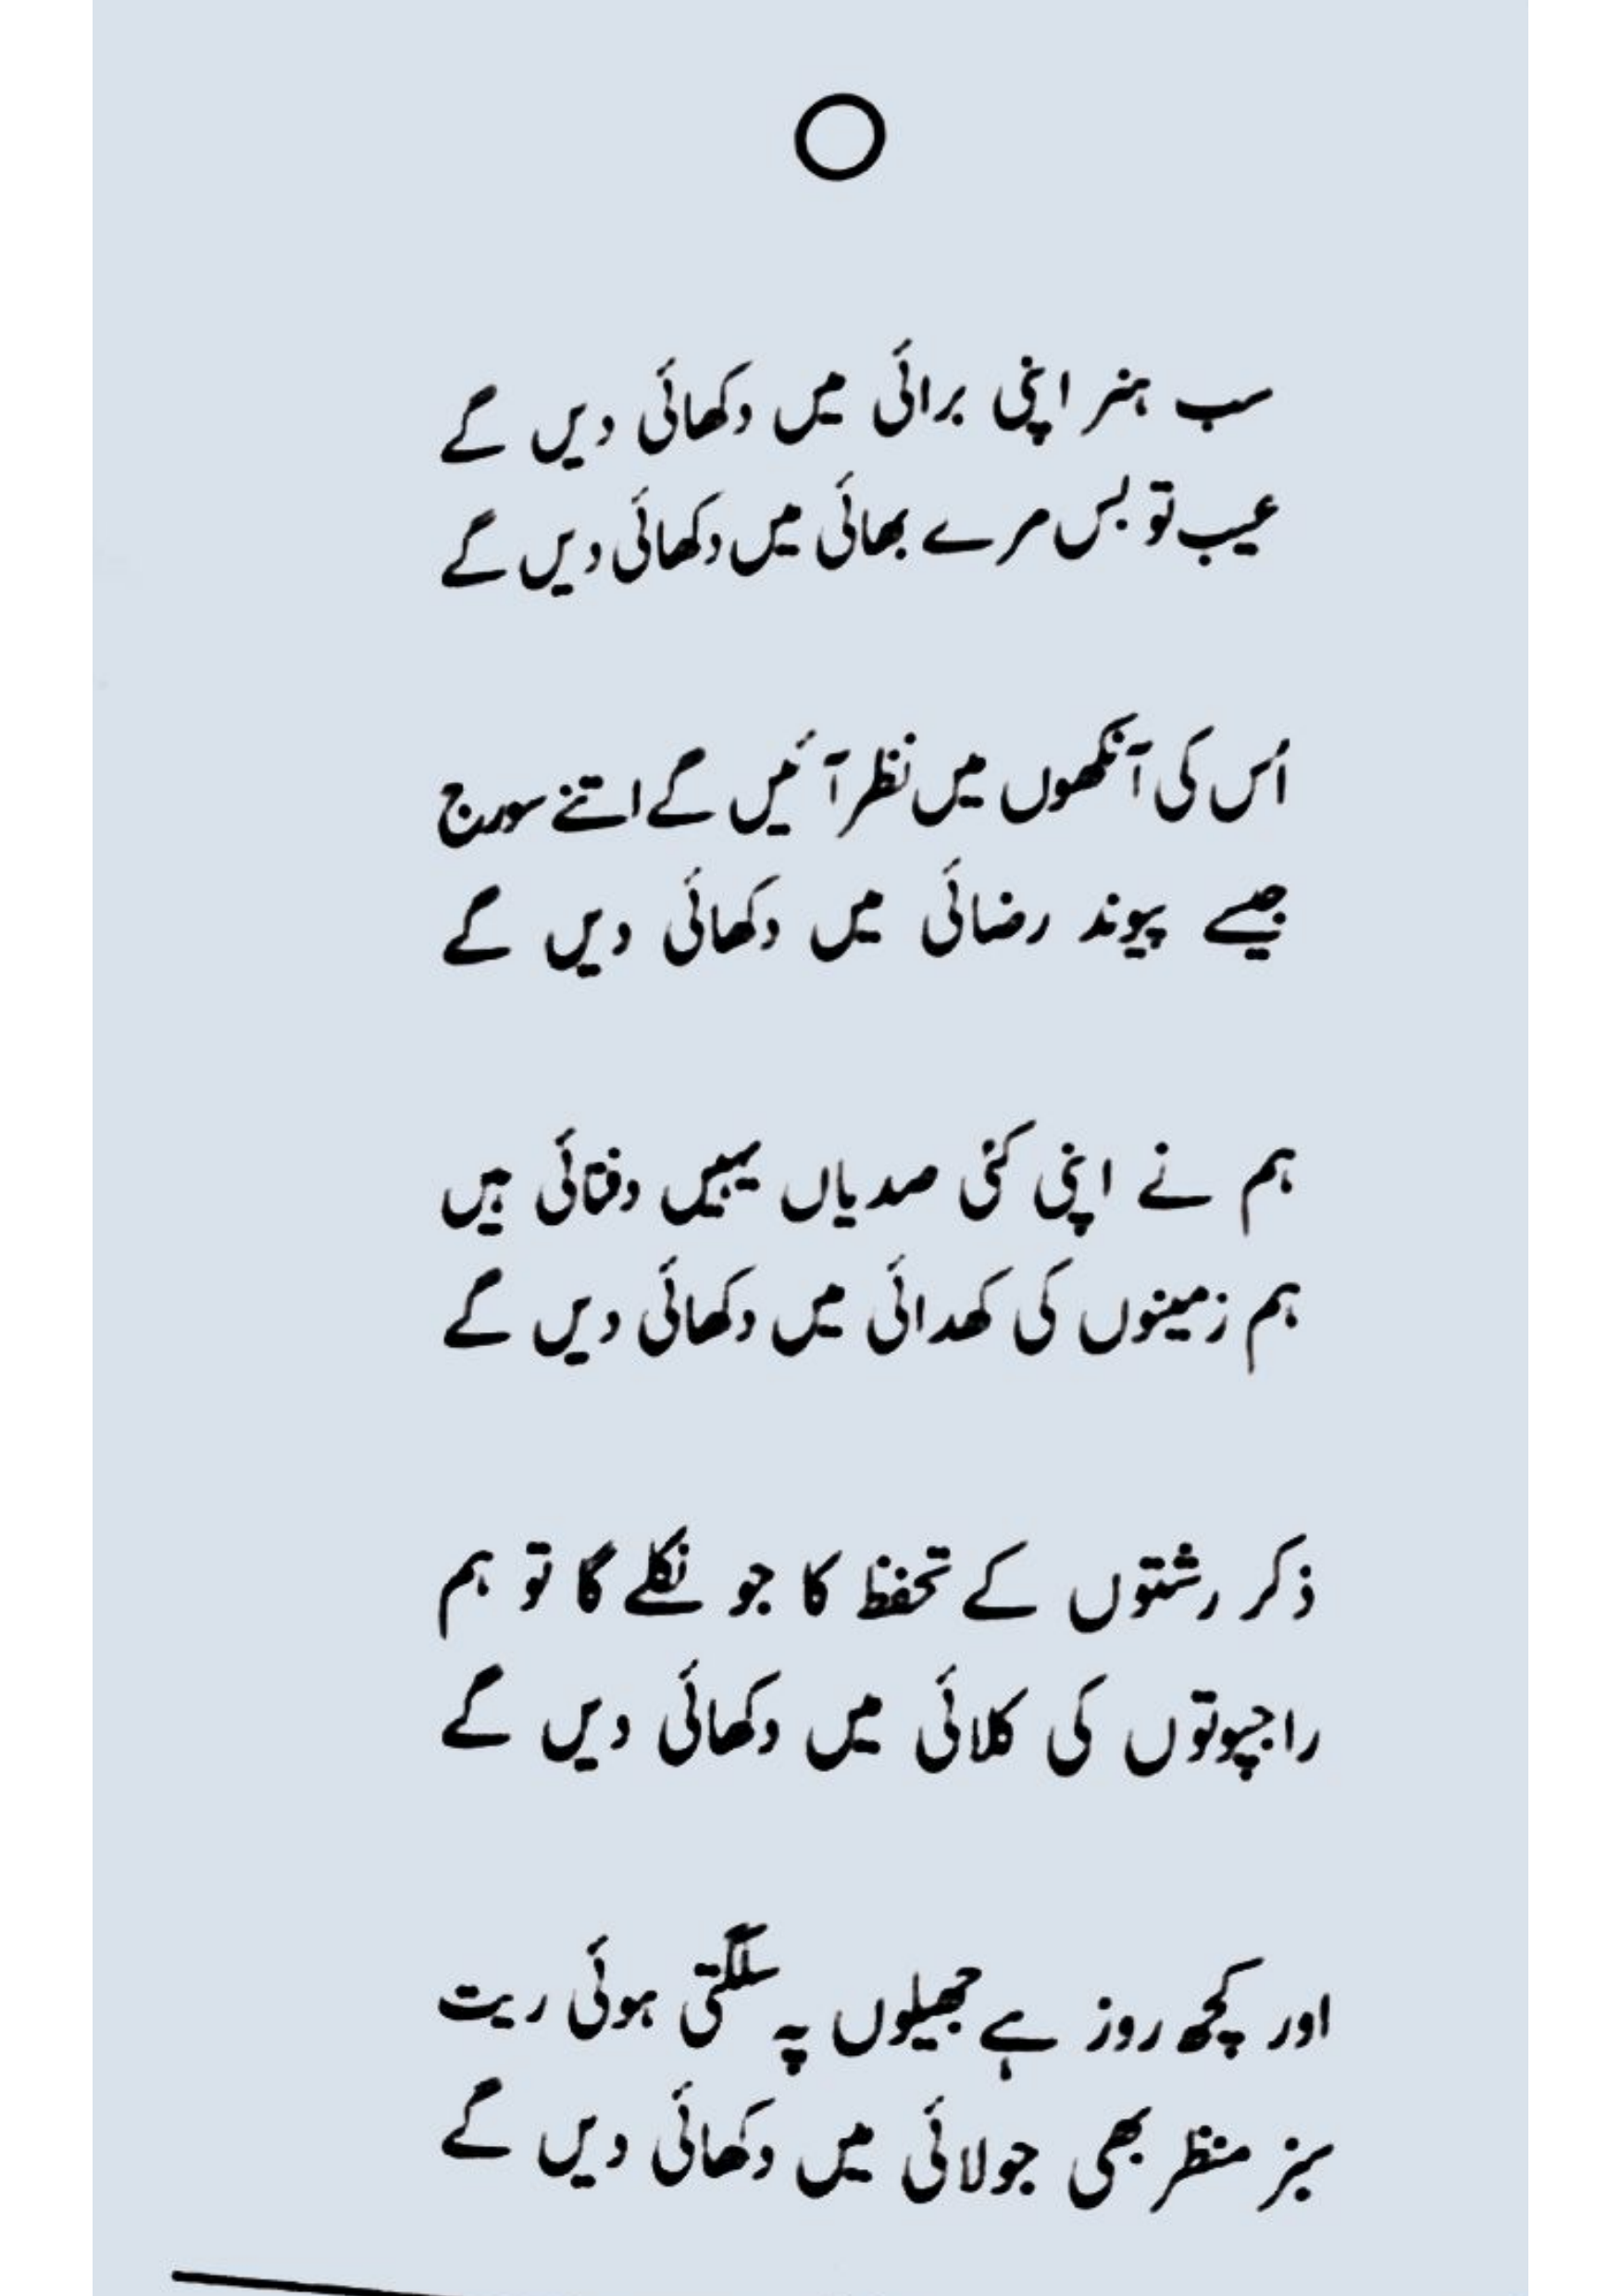 سب ہنر اپنی برائی میں دکھائی دیں گے
عیب تو بس مرے بھائی میں دکھائی دیں گے
اُس کی آنکھوں میں نظر آئیں گے اتنے سورج
جیسے پیوند رضائی میں دکھائی دیں گے
ہم نے اپنی کئی صدیاں یہیں دفنائی ہیں
ہم زمینوں کی کھدائی میں دکھائی دیں گے
ذکر رشتوں کے تحفظ کا جو نکلے گا تو ہم
راجپوتوں کی کلائی میں دکھائی دیں گے
اور کچھ روز ہے جھیلوں پہ سلگتی ہوئی ریت
سبز منظر بھی جولائی میں دکھائی دیں گے